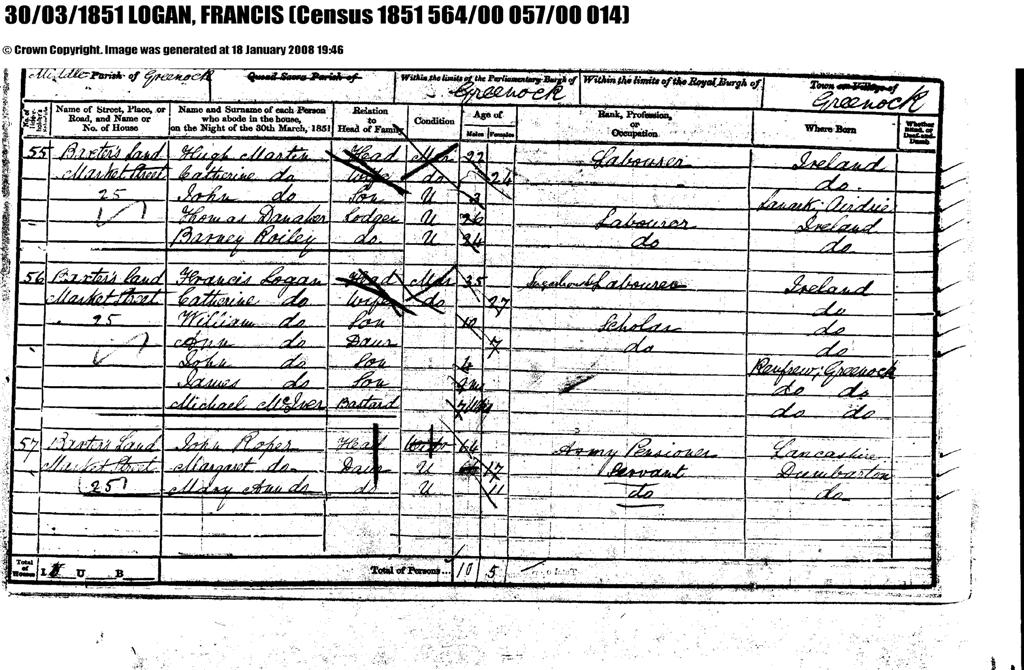 30/03/1851 LOGAN, FRANCIS (Census 1851 564/00 057/00 014)
© Crown Copyright. Image was generated at 18 January 2008 19:46
Middle Parish of Greenock Quoad Sacra Parish of Within the limits of the Parliamentary Burgh of Greenock Within the limits of the Royal Burgh of Town or Village of Greenock
Name of Street, Place, or Road, and Name or No. of House Name and Surname of each Person who abode in the house, on the Night of the 30th March, 1851 Relation to Head of Family Condition Age of Males Females Rank, Profession, or Occupation Where Born Whether Blind, or Deaf-and-Dumb
55 Baxter's Land Hugh Martin Head Mar 27 Labourer Ireland
Market Street Catherine do Wife do 24 do.
25 John do Son U 3 Lanark; Airdrie
Thomas Danaher Lodger U 26 Labourer Ireland
Barney Roiley do. U 24 do do
56 Baxter's Land Francis Logan Head Mar 35 Sugarhouse Labourer Ireland
Market Street Catherine do Wife do 27 do
25 William do Son 10 Scholar do
Ann do Daur 7 do do
John do Son 4 Renfrew; Greenock
James do Son do do
Michael McIver Bastard do do
57 Baxter's Land John Roper Head 64 Army Pensioner Lancashire
Market Street Margaret do Daur U 17 Servant Dumbarton
25 Mary Ann do do U 11 do do
Total of Houses I U B Total of Persons... 10 5